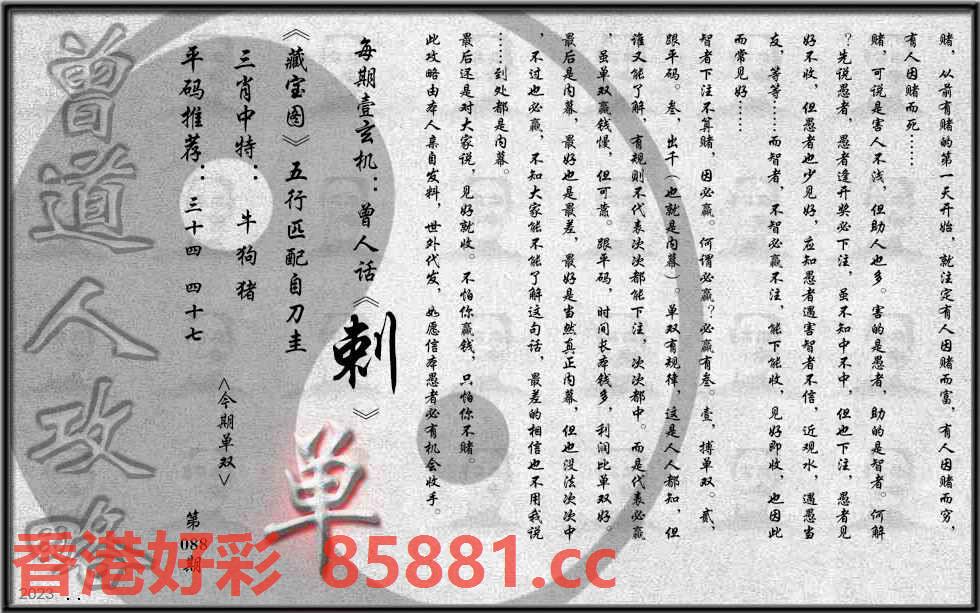 赌，从前有赌的第一天开始，就注定有人因赌而富，有人因赌而穷，
有人因赌而死……
赌，可说是害人不浅，但助人也多。害的是愚者，助的是智者。何解
？先说愚者，愚者逢开奖必下注，虽不知中不中，但也下注，愚者见
好不收，但愚者也少见好，应知愚者遇害智者不信，近观水，遇愚当
友，等等……而智者，不智必赢不注，能下能收，见好即收，也因此
而常见好……
智者下注不算赌，因必赢。何谓必赢？必赢有叁。壹，搏单双。贰，
跟平码。叁，出千（也就是内幕）。单双有规律，这是人人都知，但
谁又能了解，有规则不代表次次都能下注，次次都中。而是代表必赢
，虽单双赢钱慢，但可靠。跟平码，时间长本钱多，利润比单双好。
最后是内幕，最好也是最差，最好是当然真正内幕，但也没法次次中
，不过也必赢，不知大家能不能了解这句话，最差的相信也不用我说
……到处都是内幕。
最后还是对大家说，见好就收。不怕你赢钱，只怕你不赌。
此攻略由本人亲自发料，世外代发，如愿信本愚者必有机会收手。
每期壹玄机：曾人话《刺》
《藏宝图》五行匹配自刀圭
三肖中特：牛狗猪
平码推荐：三十四 四十七
<今期单双>
单
第
088
期
曾道人攻略
香港好彩 85881.cc
2023